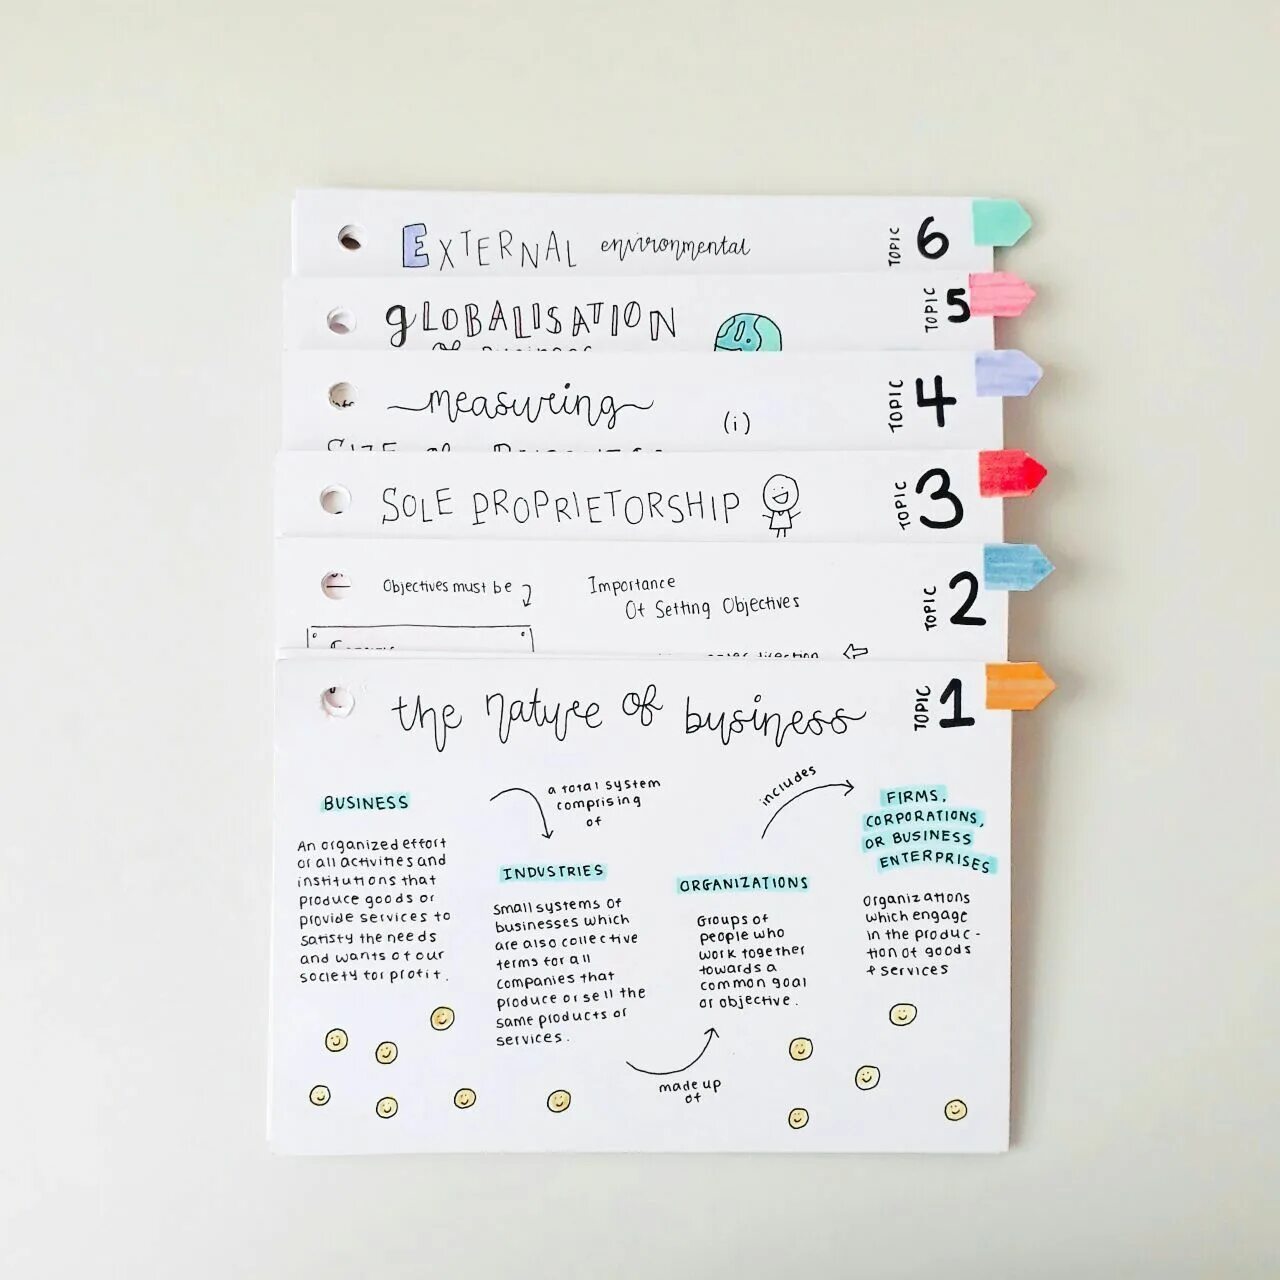 EXTERNAL environmental
TOPIC 6
gLOBALISATION
TOPIC 5
measuring
(i)
TOPIC 4
SOLE PROPRIETORSHIP
TOPIC 3
Objectives must be
Importance
Of Setting Objectives
TOPIC 2
the nature of business
TOPIC 1
BUSINESS
An organized effort
or all activities and
institutions that
produce goods or
provide services to
satisfy the needs
and wants of our
society for profit.
a total system
comprising
of
INDUSTRIES
Small systems of
businesses which
are also collective
terms for all
companies that
produce or sell the
same products or
services.
made up
of
ORGANIZATIONS
Groups of
people who
work together
towards a
common goal
or objective.
includes
FIRMS,
CORPORATIONS,
OR BUSINESS
ENTERPRISES
Organizations
which engage
in the produc-
tion of goods
+ services